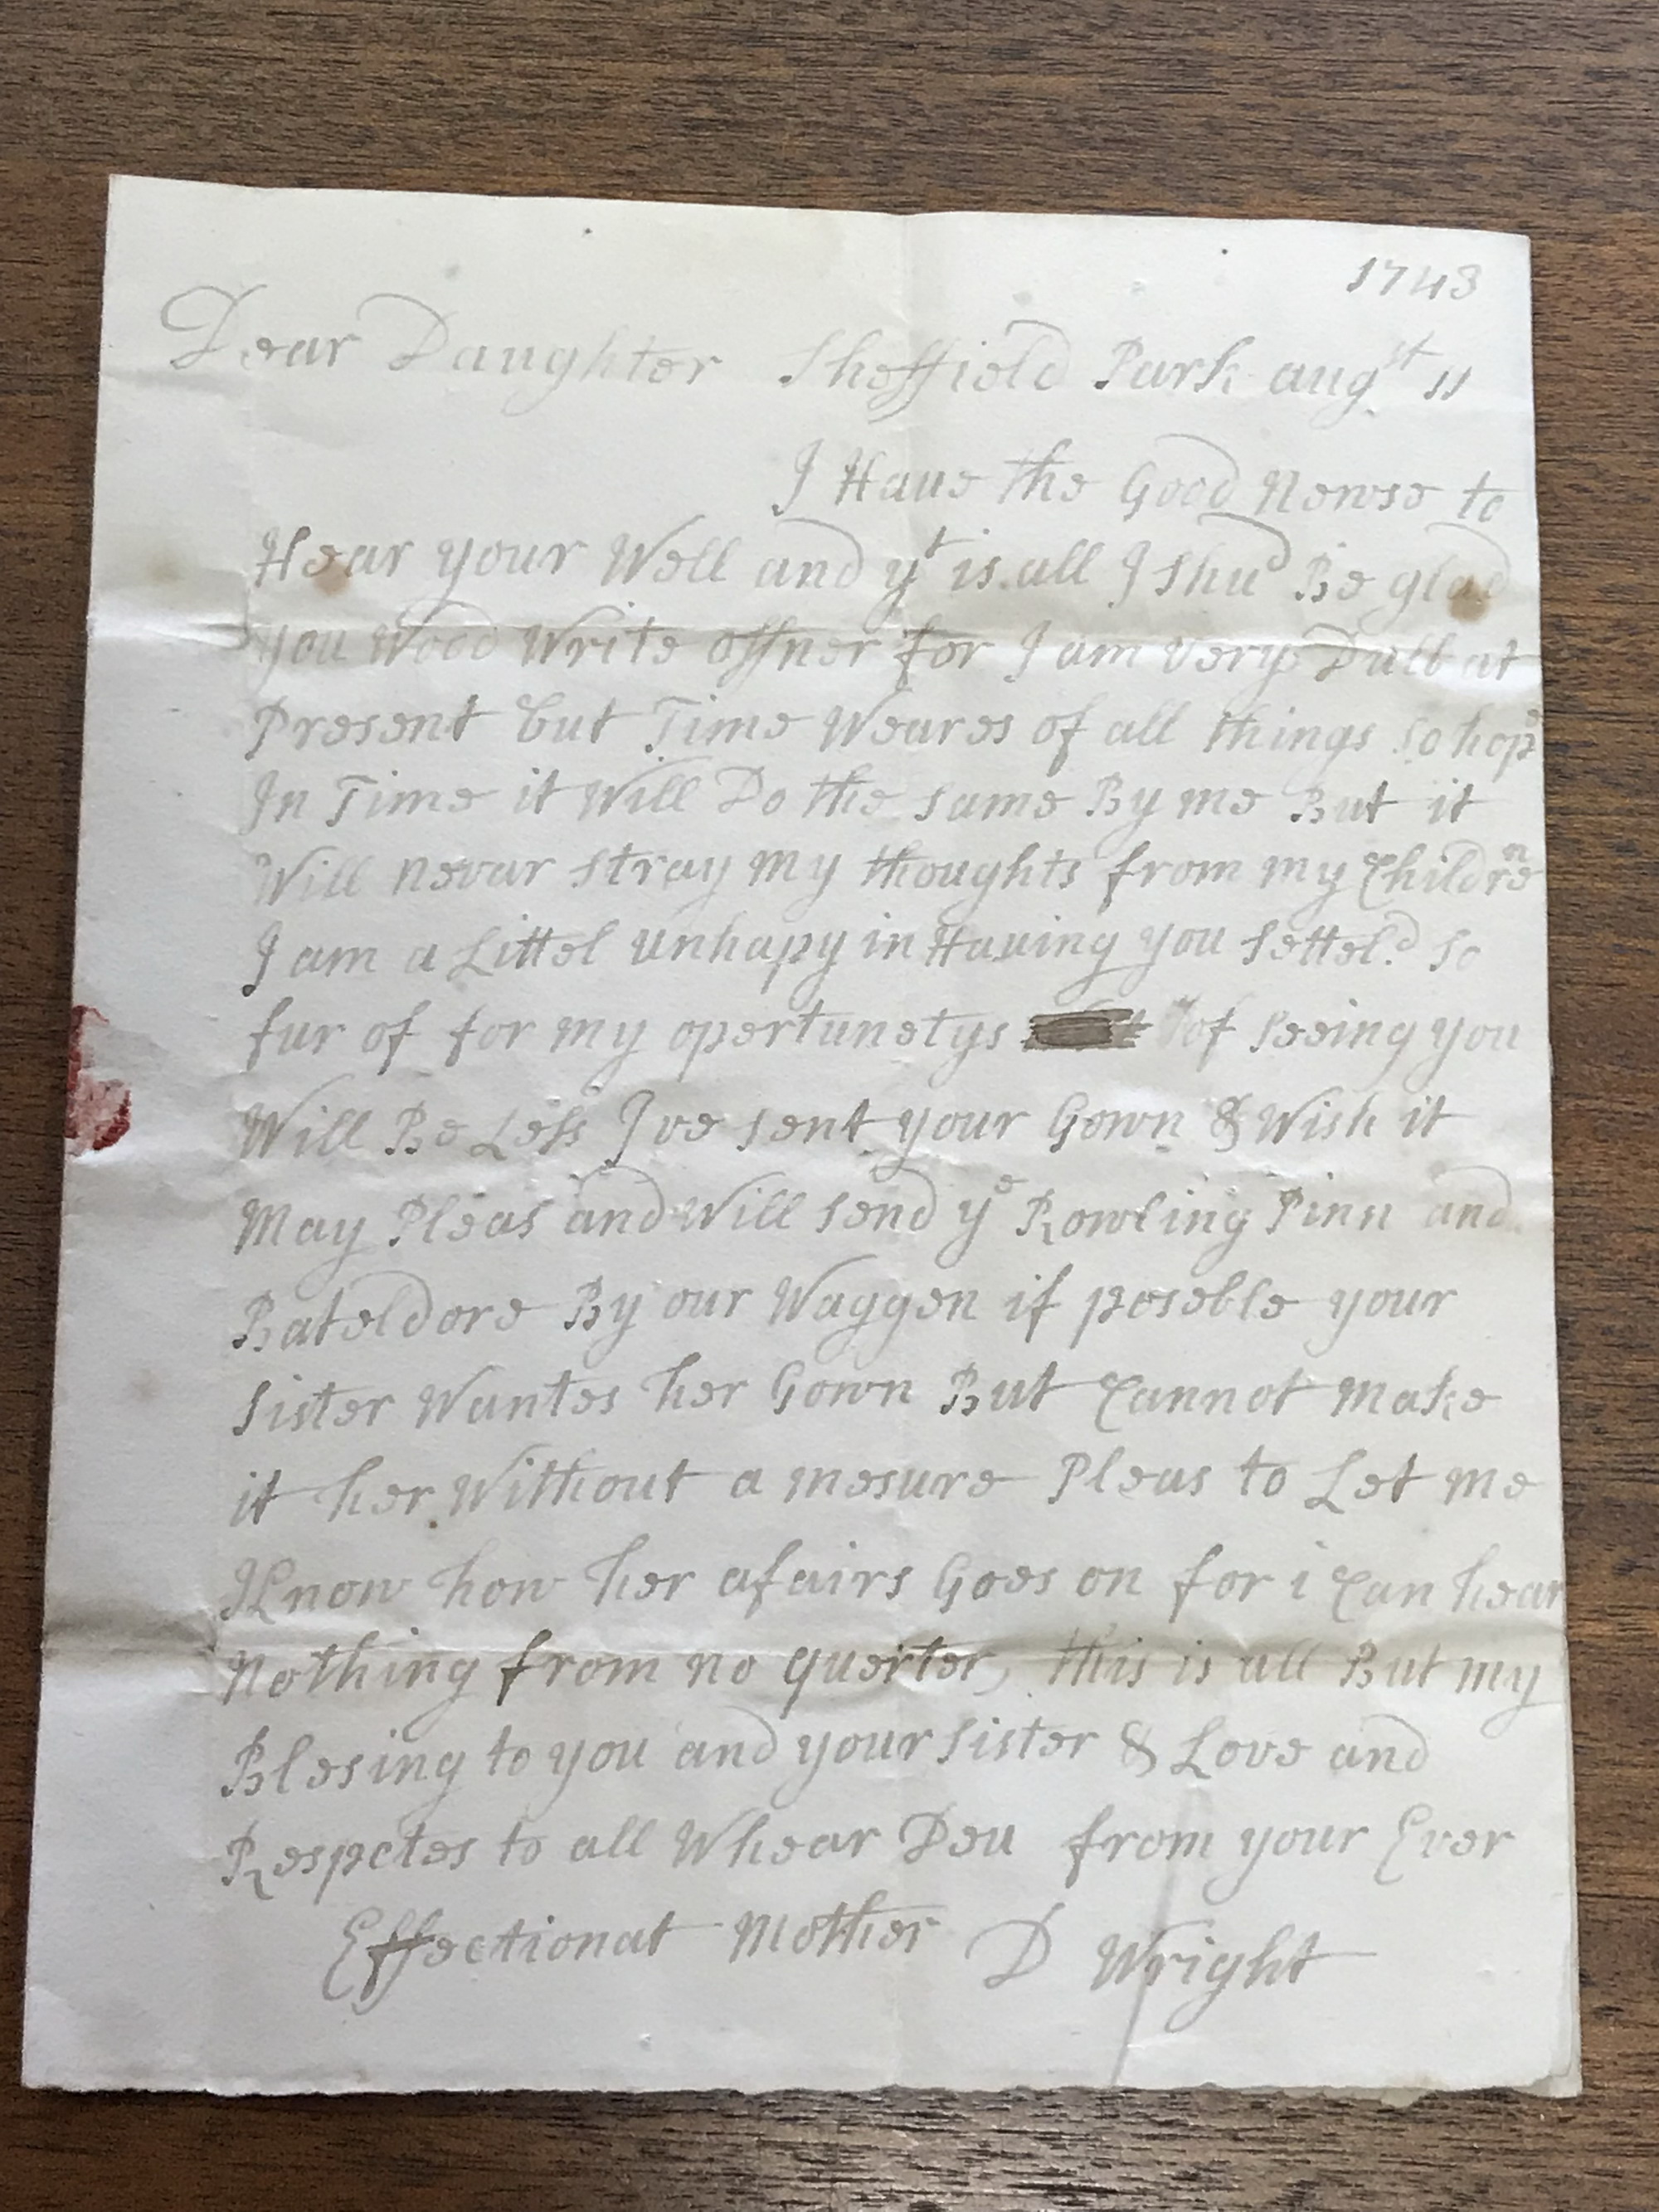 1743
Dear Daughter Sheffield Park augst 11
I Haue the Good Newse to
Hear your Well and yt is all I Shud Be glad
you Wood Write offner for I am very Dull at
Present but Time Weares of all things so hope
In Time it Will Do the same By me But it
Will nevar stray my thoughts from my Childrne
I am a Littel unhapy in Hauing you settel.d so
fur of for my opertunetys of seeing you
Will Be Less I ve sent your Gown & Wish it
May Pleas and Will send ye Rowling Pinn and
Bateldore By our Waggen if poseble your
sister Wantes her Gown But Cannot make
it her Without a mesure Pleas to Let me
Know how her afairs Goes on for i Can hear
Nothing from no querter, this is all But my
Blesing to you and your sister & Love and
Respctes to all Whear Deu from your Ever
Effectionat Mother D Wright